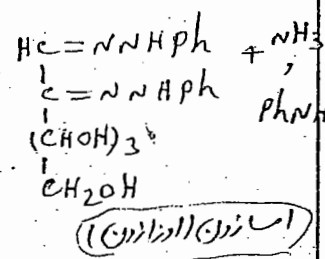 HC=NNHPh + NH3
,
C=NNHPh
PhNH
(CHOH)3
CH2OH
(اسازون (اوزازون